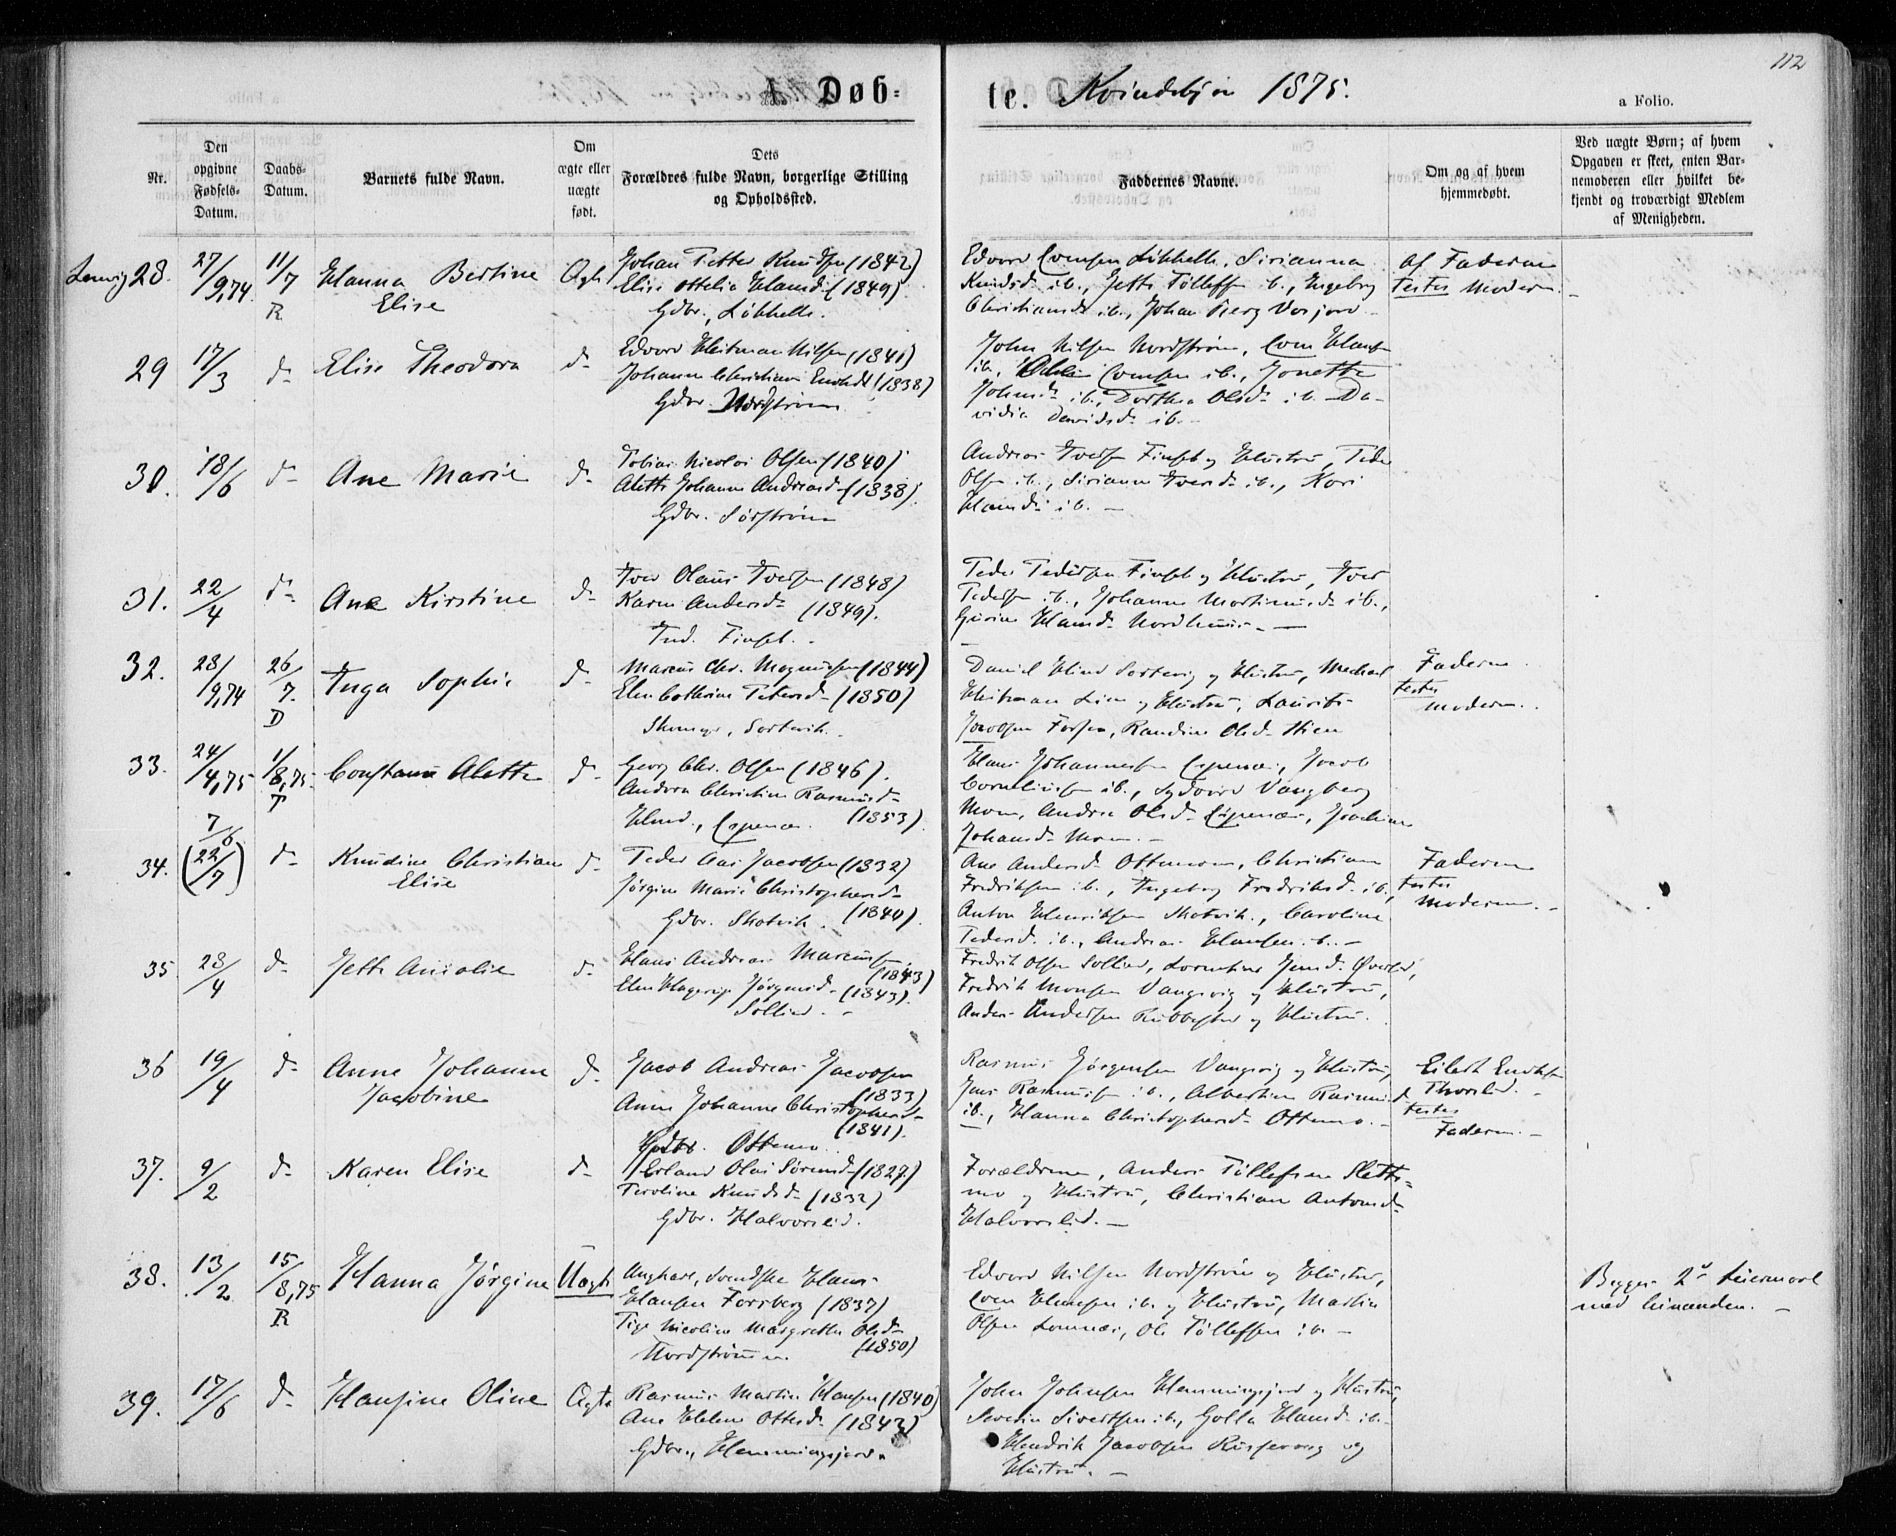 112
1. Døb-
te. Kvindekjøn 1875.
a Folio.
Nr.
Den opgivne Fødsels-Datum.
Daabs-Datum.
Barnets fulde Navn.
Om ægte eller uægte født.
Dets Forældres fulde Navn, borgerlige Stilling og Opholdssted.
Faddernes Navne.
Om og af hvem hjemmedøbt.
Ved uægte Børn; af hvem Opgaven er skeet, enten Barnemoderen eller hvilket bekjendt og troværdigt Medlem af Menigheden.
28. 27/9,74 11/7 R Hanna Bertine Elise Ægte
Johan Petter Knudsen (1842)
Elise Ottelia Hansd. (1849)
Gdbr., Løkhelle.
Knudsd. ib., Jette Tølleffsen ib., Ingebrg
Christiansd. ib., Johan
Af Faderen
Testes Moderen.
29 17/3 do Elise Theodora do
Edvard Heitman Nilsen (1841)
Johanna Christiane (1838)
Gdbr. Nordstrøm
John Nilsen Nordstrøm,
ib., ib., Jonetta
Johnsd. ib., Dorthea Olsd. ib. Da-
vidia Davidsd. ib.
30. 18/6 do Ane Marie do
Tobias Nicolai Olsen (1840)
Aletta Johanna Andreasd. (1838)
Gdbr. Sørstrøm
Andreas Iversen Finset og Hustru, Peder
Olsen ib., Sirianna Iversd. ib., Kari
Hansd. ib. —
31. 22/4 do Ane Kirstine do
Iver Olaus Iversen (1848)
Karen Andersd. (1849).
Ind. Finset.
Peder Pedersen Finset og Hustru, Iver
Pedersen ib., Johanna Martinusd. ib.,
Gurine Hansd. Nordhuus. —
32. 28/9,74 26/7. D Inga Sophie do
Marcus Chr. Magnussen (1844)
Elen Cathrine Petersd. (1850)
Sortevik.
Daniel Sortevig og Hustru, Mechael
Heitman og Hustru, Laurits
Jacobsen Forsøen, Randine Olsd.
Faderen
testes
Moderen.
33. 24/4,75 1/8,75. T Constanse Aletta do
Georg Chr. Olsen (1846).
Andora Christine Rasmusd.
(1853).
Hans Johannessen Espenæs, Jacob
Corneliussen ib., Sydvard Vangberg
Moen, Andrea Olsd. Espenæs, Joachim
Johansd. Moen. —
34. 7/6 (22/7) do Knudine Christiane Elise do
Peder Aas Jacobsen (1832)
Jørgine Marie Christophersd.
Gdbr. Skotvik. (1840).
Ane Andersd. Ottemoen, Christian
Fredriksen ib., Ingeborg Fredriksd. ib,
Anton Henriksen Skotvik, Caroline
Pedersd. ib., Andreas Hansen ib. —
Faderen
testes
Moderen. —
35. 28/4 do Jette Amalie do
Hans Andreas Marcussen
(1843)
Elen Jørgensd. (1843).
Sollied. —
Fredrik Olsen Sollied, Lorentine Jensd.
Fredrik Monsen Vangsvig og Hustru,
Anders Andersen og Hustru.
36 19/4 do Anne Johanna Jacobine do
Jacob Andreas Jacobsen
(1833)
Anne Johanne Christophersd.
(1841).
Gdbr. Ottemo.
Rasmus Jørgensen Vangsvig og Hustru,
Jens Rasmussen ib., Albertine Rasmusd.
ib., Hanna Christophersd. Ottemo. —
testes
Faderen. —
37. 9/2 do Karen Elise do
Erland Olai Sørensd. (1829)
Peroline Knudsd. (1832)
Gdbr. Halvorslid.
Forældrene, Anders Tølleffsen Sletten-
mo og Hustru, Christian Antonsd.
Halvorslid. —
38. 13/2 15/8,75 R Hanna Jørgine Uægte
Ungkarl, Svendske Hans
Hansen Forsberg (1837)
Pige Nicoline Margrethe Olsd.
Nordstrømmen. (1850)
Edvard Nilsen Nordstrøm og Hustru,
Hansen ib. og Hustru, Martin
Olsen Lomnæs, Ole Tølleffsen ib. —
Begges 2det Leiermaal
med hinanden. —
39. 17/6 do Hansine Oline Ægte
Rasmus Martin Hansen (1840)
Ane Helene Ottesd. (1843)
Gdbr., Hemmingsjord.
John Johnsen Hemmingsjord og Hustru,
Severin Sivertsen ib., Golla Hansd. ib.
Hendrik Jacobsen og
Hustru. —